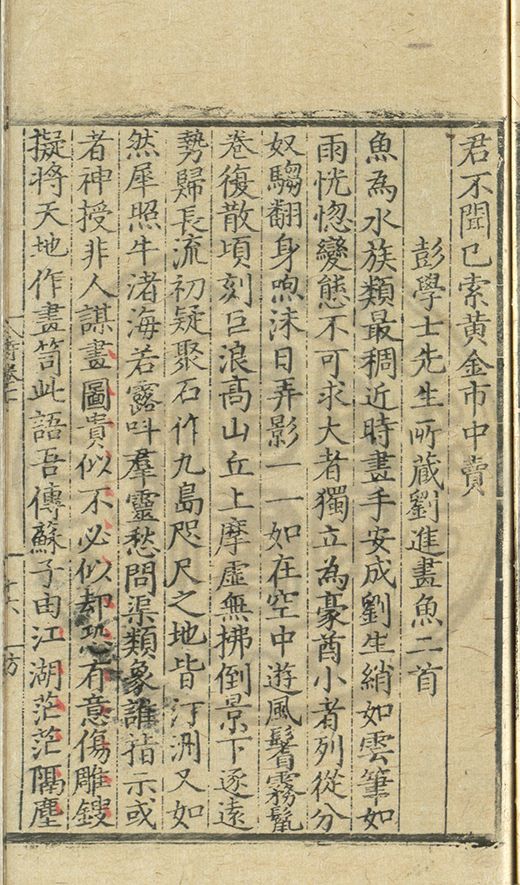 君不聞已索黃金市中賣
彭學士先生所藏劉進畫魚二首
魚為水族類最稠近時畫手安成劉生綃如雲筆如
雨恍惚變態不可求大者獨立為豪酋小者列從分
奴騶翻身喣沫日弄影一一如在空中遊風鬐霧鬣
卷復散頃刻巨浪高山丘上摩虛無拂倒景下逐遠
勢歸長流初疑聚石作九島咫尺之地皆汀洲又如
然犀照牛渚海若露呌羣靈愁問渠類象誰指示或
者神授非人謀畫圖貴似不必似却恐有意傷雕鎪
擬將天地作畫笥此語吾傳蘇子由江湖茫茫隔塵
十六